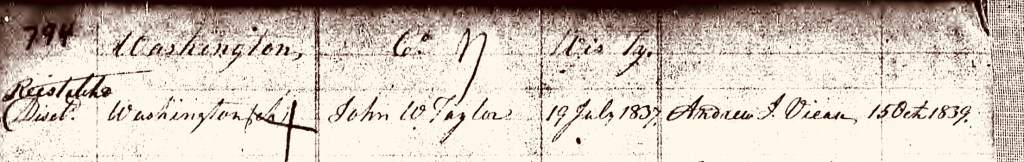 794 Washington, Co. Wis Ty.
Reestabd
Discd. Washington (ch) John W. Taylor 19 July 1837 Andrew J. Vieau 15 Oct 1839.